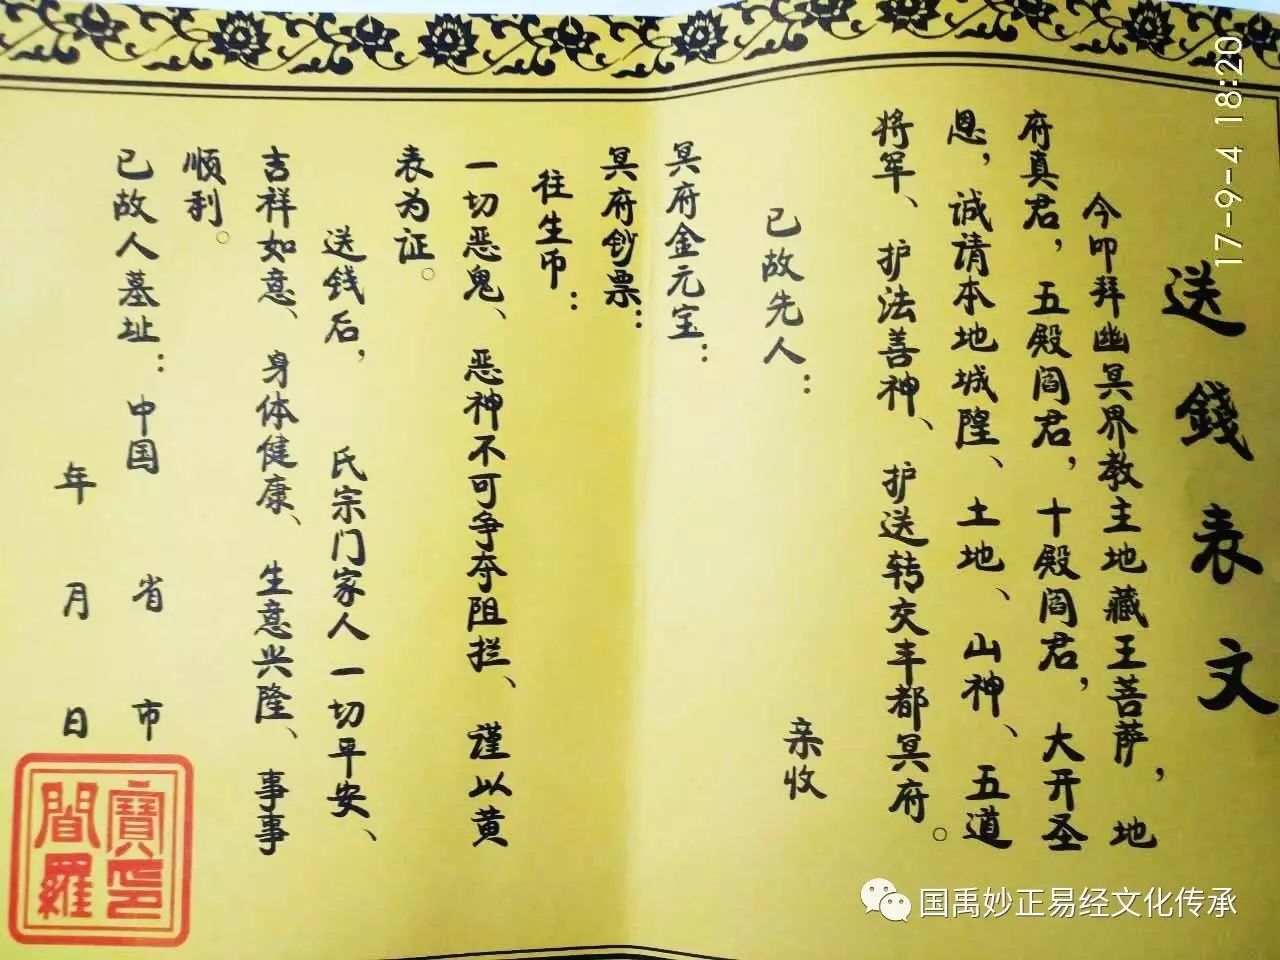 送錢表文
今叩拜幽冥界教主地藏王菩萨，地
府真君，五殿阎君，十殿阎君，大开圣
恩，诚请本地城隍、土地、山神、五道
将军、护法善神、护送转交丰都冥府。
已故先人：亲收
冥府金元宝：
冥府钞票：
往生币：
一切恶鬼、恶神不可争夺阻拦、谨以黄
表为证。
送钱后，氏宗门家人一切平安、
吉祥如意、身体健康、生意兴隆、事事
顺利。
已故人墓址：中国 省 市
年 月 日
寶印
閻羅
17-9-4 18:20
国禹妙正易经文化传承